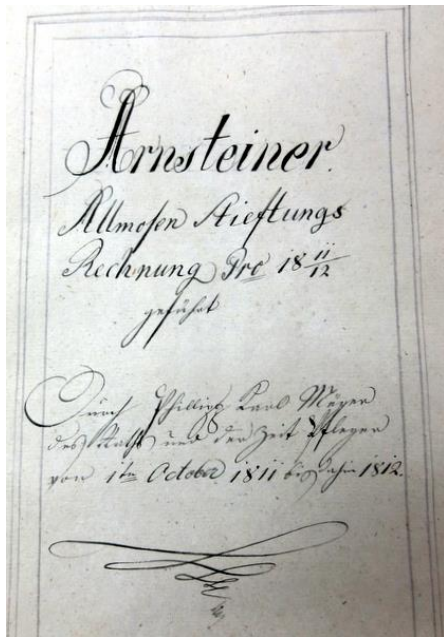 Arnsteiner.
Allmosen Stieftungs
Rechnung Pro 18 11/12
geführt
Durch Phillipp Karl Meyer
des Raths und der Zeit Pfleger
von 1ten October 1811 bis dahin 1812.